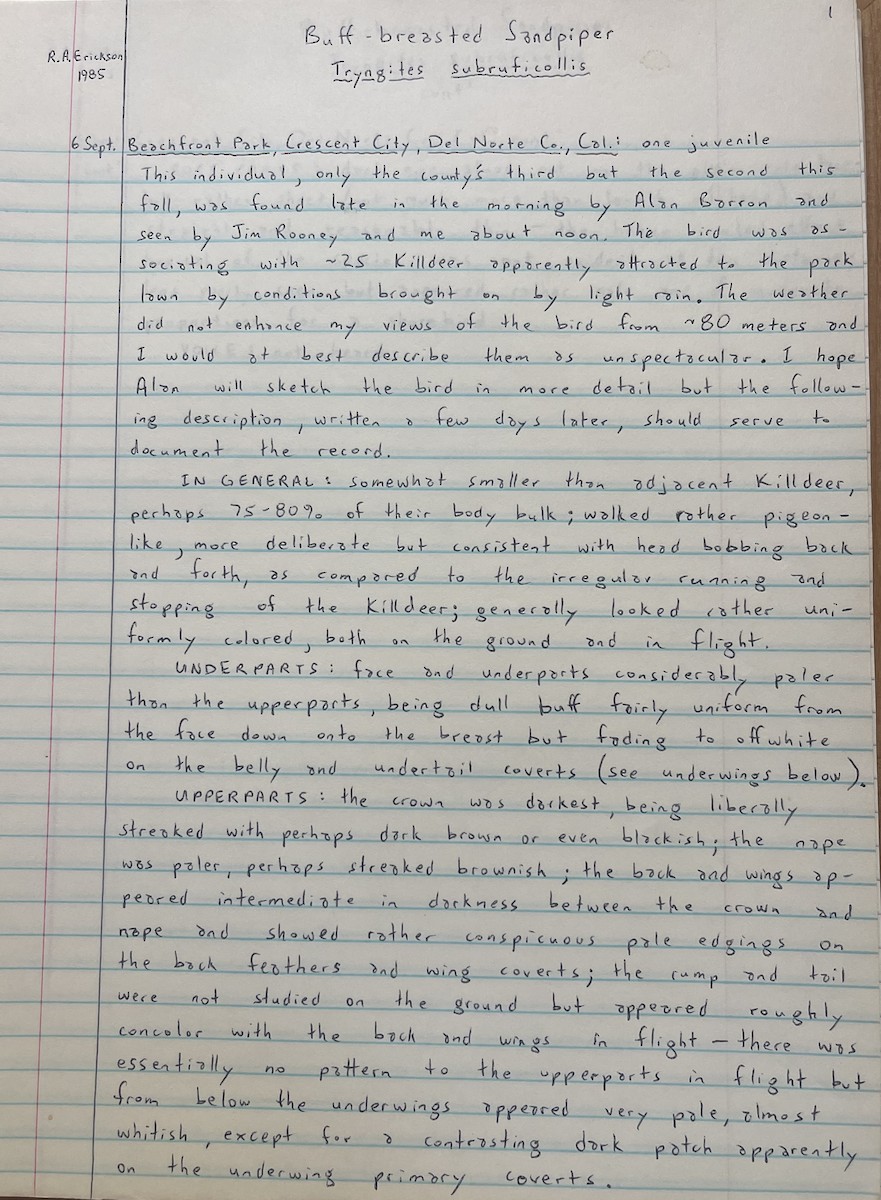 1
Buff-breasted Sandpiper
R.A. Erickson
1985
Tryngites subruficollis
6 Sept. Beachfront Park, Crescent City, Del Norte Co., Cal.: one juvenile
This individual, only the county's third but the second this
fall, was found late in the morning by Alan Barron and
seen by Jim Rooney and me about noon. The bird was as-
sociating with ~25 Killdeer apparently attracted to the park
lawn by conditions brought on by light rain. The weather
did not enhance my views of the bird from ~80 meters and
I would at best describe them as unspectacular. I hope
Alan will sketch the bird in more detail but the follow-
ing description, written a few days later, should serve to
document the record.
IN GENERAL: somewhat smaller than adjacent Killdeer,
perhaps 75-80% of their body bulk; walked rather pigeon-
like, more deliberate but consistent with head bobbing back
and forth, as compared to the irregular running and
stopping of the Killdeer; generally looked rather uni-
formly colored, both on the ground and in flight.
UNDERPARTS: face and underparts considerably paler
than the upperparts, being dull buff fairly uniform from
the face down onto the breast but fading to offwhite
on the belly and undertail coverts (see underwings below).
UPPERPARTS: the crown was darkest, being liberally
streaked with perhaps dark brown or even blackish; the nape
was paler, perhaps streaked brownish; the back and wings ap-
peared intermediate in darkness between the crown and
nape and showed rather conspicuous pale edgings on
the back feathers and wing coverts; the rump and tail
were not studied on the ground but appeared roughly
concolor with the back and wings in flight — there was
essentially no pattern to the upperparts in flight but
from below the underwings appeared very pale, almost
whitish, except for a contrasting dark patch apparently
on the underwing primary coverts.